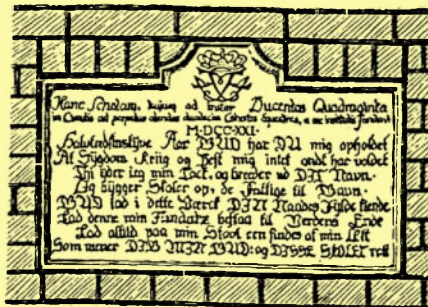 Hanc Scholam, hujus ad instar Ducentas Quadraginta
ad perpetuo alendas duodecim Cohortes Equestres, a me institutis fundavi
M·DCC·XXI·
Halvtredsinstyve Aar GUD har DU mig opholdet
At Sygdom Kriig og Pest mig intet ondt har voldet
Thi yder ieg min Tack, og breder ud DIT Navn.
Og bygger Skoler op, de Fattige til Gavn.
GUD lad i dette Værck DIN Naades Fylde kiende
Lad denne min Fundatz bestaa til Verdens Ende
Lad altiid paa min Stool een findes af min Æt
Som mener DIG MIN GUD: og DISSE SKOLER rett